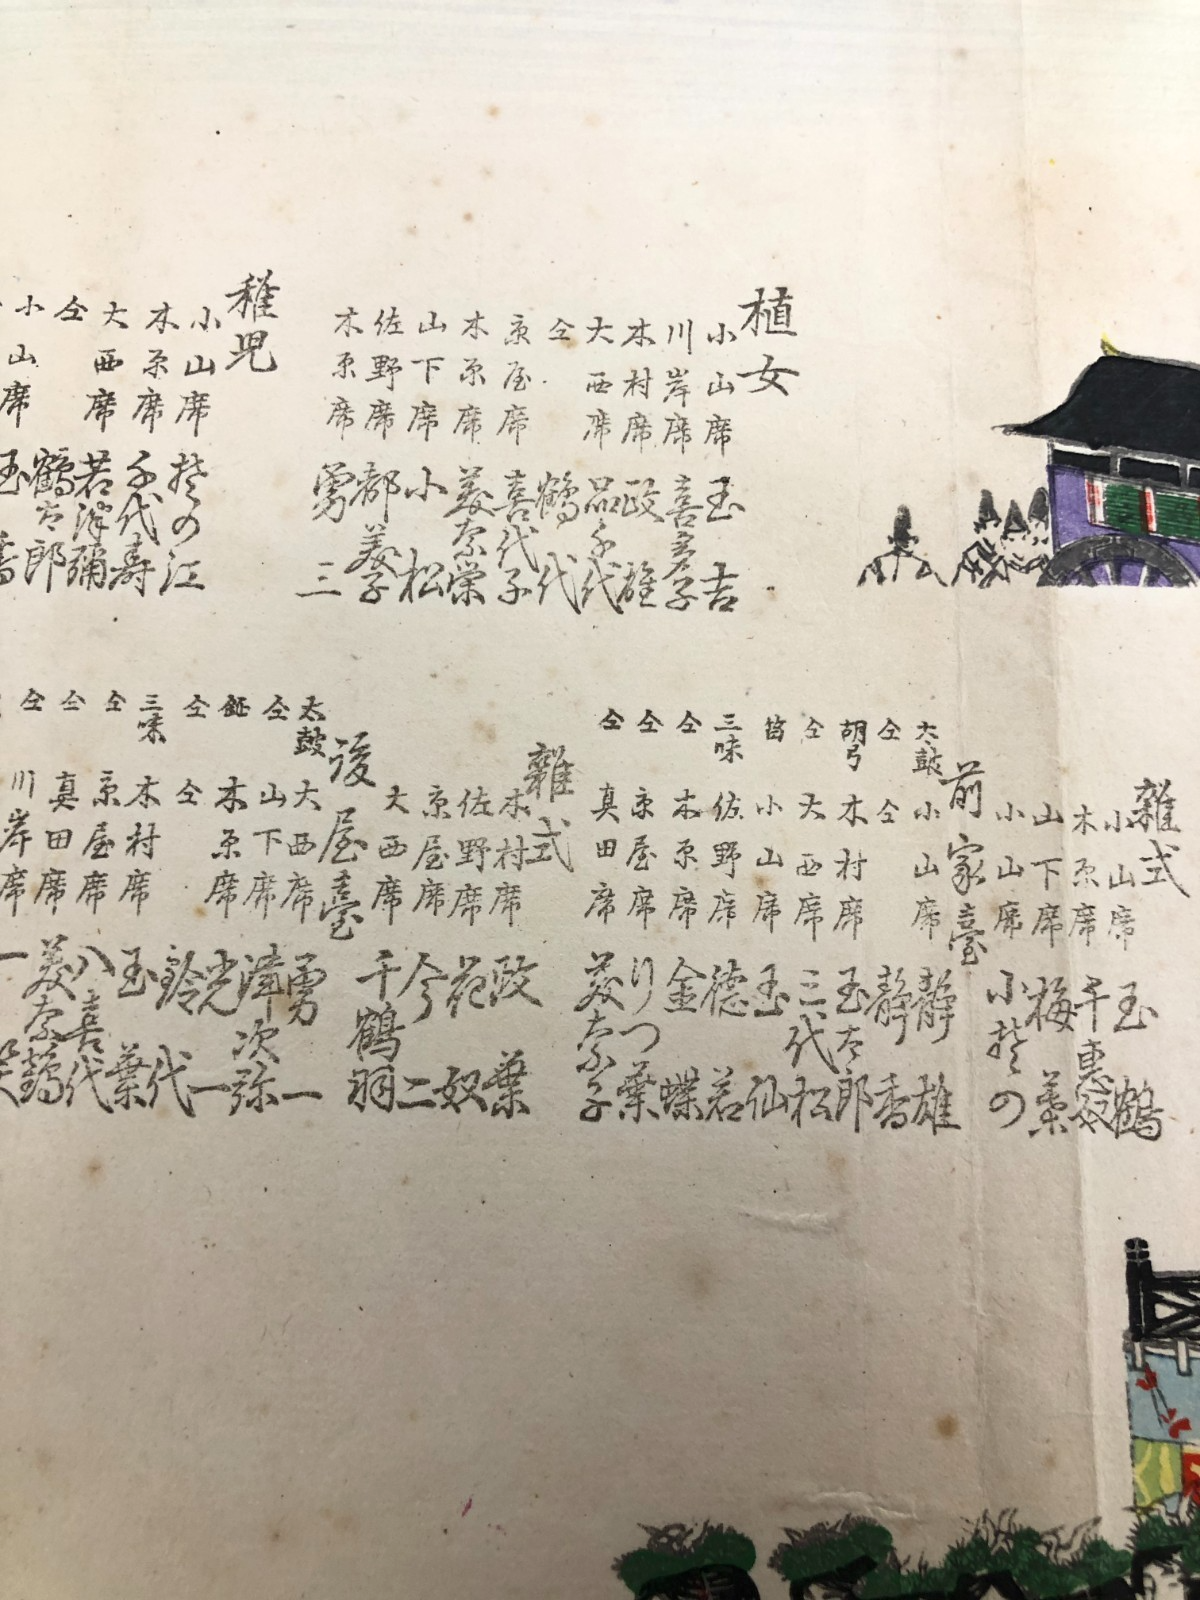 植女
小山席 玉吉
川岸席 喜美子
木村席 政雄
大西席 品千代
仝 鶴代
京屋席 喜代子
木原席 美奈栄
山下席 小松
佐野席 都美子
木原席 勇三
稚児
小山席 の江
木原席 千代寿
大西席 若津彌
仝 鶴太郎
小山席 玉香
雜式
小山席 玉鶴
木原席 千恵奴
山下席 梅葉
小山席 小の
前家臺
太鼓 小山席 静雄
仝 仝 静香
胡弓 木村席 玉太郎
仝 大西席 三代松
笛 小山席 玉仙
三味 佐野席 徳若
仝 木原席 金蝶
仝 京屋席 りつ葉
仝 真田席 美奈子
雜式
木村席 政葉
佐野席 花奴
京屋席 今二
大西席 千鶴羽
後屋臺
太鼓 大西席 勇一
仝 山下席 津次弥
鉦 木原席 光一
仝 仝 鈴代
三味 木村席 玉葉
仝 京屋席 八喜代
仝 真田席 美奈鶴
仝 川岸席 一